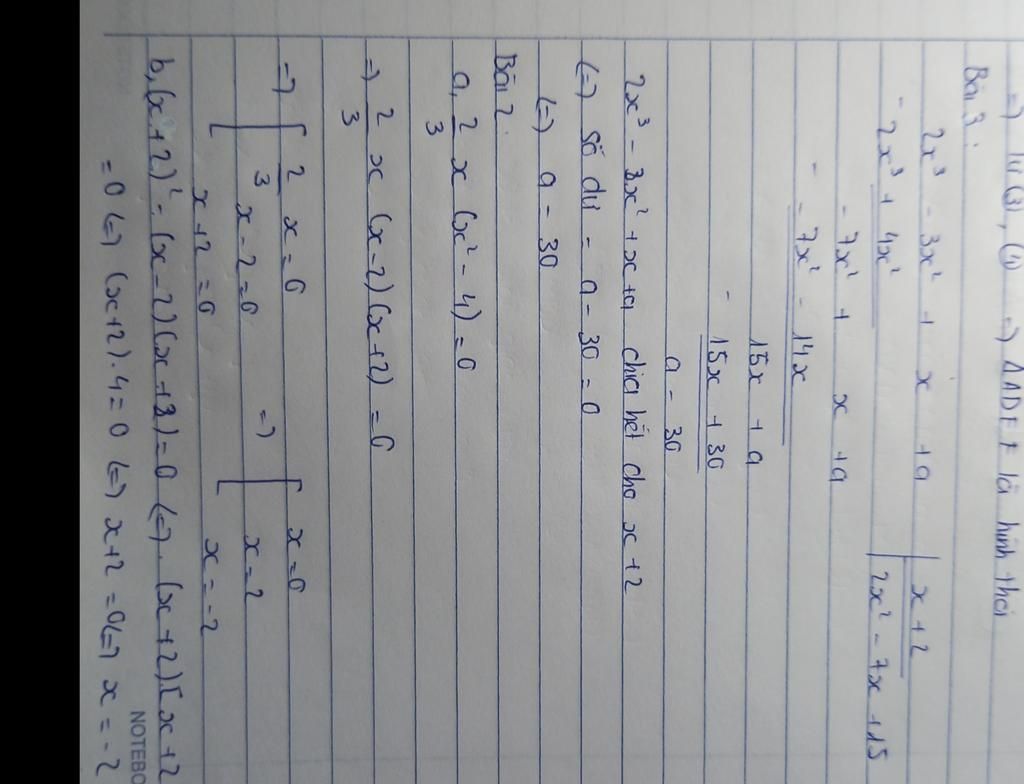 =) Từ (3), (4) =) ADEF là hình thoi
Bài 3:
2x³ - 3x² + x + a | x+2
- 2x³ + 4x² | 2x² - 7x + 15
- 7x² + x + a
- - 7x² - 14x
15x + a
- 15x + 30
a - 30
2x³ - 3x² + x + a chia hết cho x+2
(=) số dư = a - 30 = 0
(=) a = 30
Bài 2:
a, 2/3 x (x² - 4) = 0
=) 2/3 x (x-2)(x+2) = 0
=) [ 2/3 x = 0 =) [ x = 0
x - 2 = 0 x = 2
x + 2 = 0 x = -2
b, (x+2)² - (x-2)(x+2) = 0 (=) (x+2)[x+2
= 0 (=) (x+2).4 = 0 (=) x+2 = 0 (=) x = -2